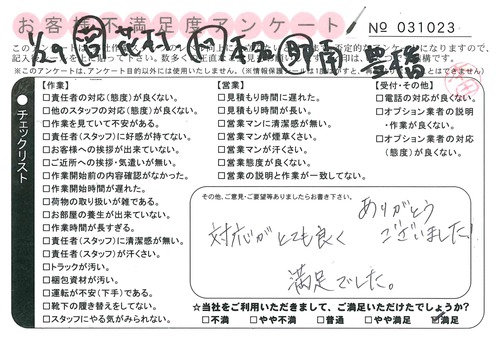 お客様不満足度アンケート
№ 031023
※このアンケートは、アンケート目的以外には使用いたしません。
チェックリスト
【作業】
□責任者の対応(態度)が良くない。
□他のスタッフの対応(態度)が良くない。
□作業を見ていて不安がある。
□責任者(スタッフ)に好感が持てない。
□お客様への挨拶が出来ていない。
□ご近所への挨拶・気遣いが無い。
□作業開始前の内容確認がなかった。
□作業開始時間が遅れた。
□荷物の取り扱いが雑である。
□お部屋の養生が出来ていない。
□作業時間が長すぎる。
□責任者(スタッフ)に清潔感が無い。
□責任者(スタッフ)が汗くさい。
□トラックが汚い。
□梱包資材が汚い。
□運転が不安(下手)である。
□靴下の履き替えをしてない。
□スタッフにやる気がみられない。
【営業】
□見積もり時間に遅れた。
□見積もり時間が長い。
□営業マンに清潔感が無い。
□営業マンが煙草くさい。
□営業マンが汗くさい。
□営業態度が良くない。
□営業の説明と作業が一致してない。
【受付・その他】
□電話の対応が良くない。
□オプション業者の説明
・作業が良くない。
□オプション業者の対応
(態度)が良くない。
その他、ご意見・ご要望等ありましたらお書き下さい。
対応がとても良く
満足でした。
ありがとう
ございました!
☆当社をご利用いただきまして、ご満足いただけたでしょうか?
□不満 □やや不満 □普通 □やや満足 ☑満足